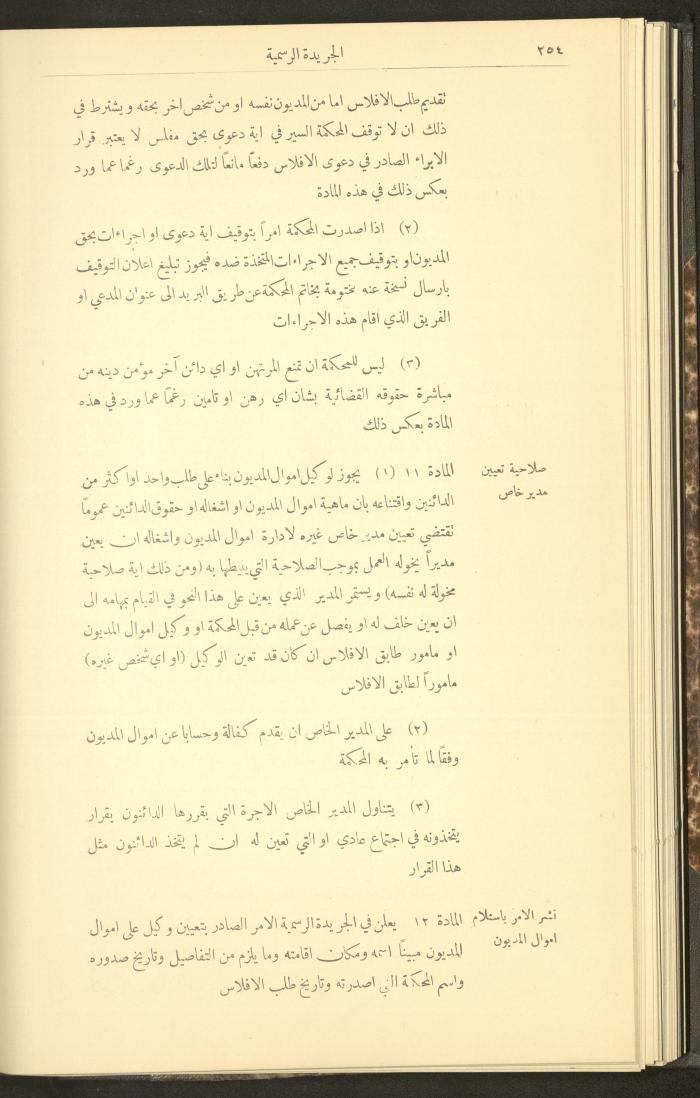 ٢٥٤
الجريدة الرسمية
تقديم طلب الافلاس اما من المديون نفسه او من شخص اخر بحقه ويشترط في
ذلك ان لا توقف المحكمة السير في اية دعوى بحق مفلس لا يعتبر قرار
الابراء الصادر في دعوى الافلاس دفعًا مانعًا لتلك الدعوى رغما عما ورد
بعكس ذلك في هذه المادة
(٢) اذا اصدرت المحكمة امرًا بتوقيف اية دعوى او اجراءات بحق
المديون او بتوقيف جميع الاجراءات المتخذة ضده فيجوز تبليغ اعلان التوقيف
بارسال نسخة عنه مختومة بخاتم المحكمة عن طريق البريد الى عنوان المدعي او
الفريق الذي اقام هذه الاجراءات
(٣) ليس للمحكمة ان تمنع المرتهن او اي دائن آخر مؤمن دينه من
مباشرة حقوقه القضائية بشان اي رهن او تامين رغمًا عما ورد في هذه
المادة بعكس ذلك
صلاحية تعيين
مدير خاص
المادة ١١ (١) يجوز لوكيل اموال المديون بناء على طلب واحد او اكثر من
الدائنين واقتناعه بان ماهية اموال المديون او اشغاله او حقوق الدائنين عمومًا
تقتضي تعيين مدير خاص غيره لادارة اموال المديون واشغاله ان يعين
مديرًا يخوله العمل بموجب الصلاحية التي ينيطها به (ومن ذلك اية صلاحية
مخولة له نفسه) ويستمر المدير الذي يعين على هذا النحو في القيام بمهامه الى
ان يعين خلف له او يفصل عن عمله من قبل المحكمة او وكيل اموال المديون
او مامور طابق الافلاس ان كان قد تعين الوكيل (او اي شخص غيره)
مامورًا لطابق الافلاس
(٢) على المدير الخاص ان يقدم كفالة وحسابا عن اموال المديون
وفقًا لما تأمر به المحكمة
(٣) يتناول المدير الخاص الاجرة التي يقررها الدائنون بقرار
يتخذونه في اجتماع عادي او التي تعين له ان لم يتخذ الدائنون مثل
هذا القرار
نشر الامر باستلام
اموال المديون
المادة ١٢ يعلن في الجريدة الرسمية الامر الصادر بتعيين وكيل على اموال
المديون مبينًا اسمه ومكان اقامته وما يلزم من التفاصيل وتاريخ صدوره
واسم المحكمة التي اصدرته وتاريخ طلب الافلاس